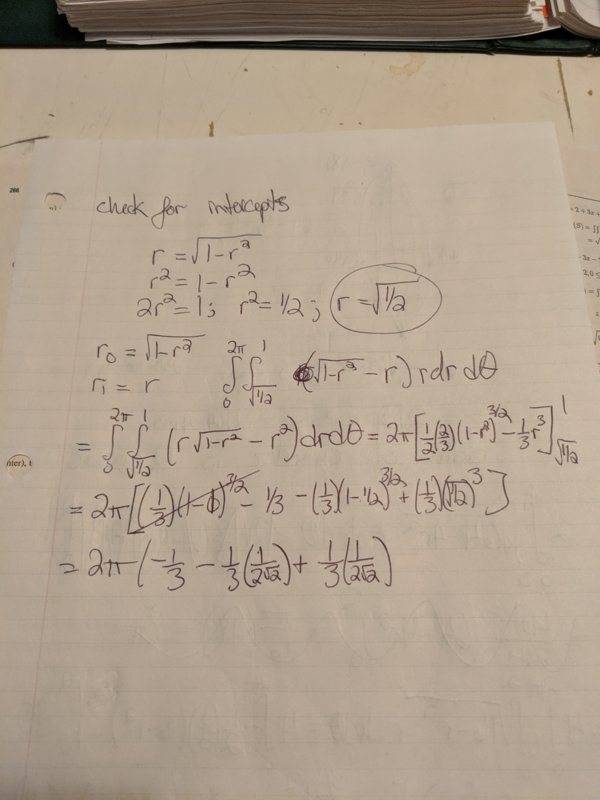 266
check for intercepts
r = √1-r²
r² = 1 - r²
2r² = 1; r² = 1/2; r = √1/2
r₀ = √1-r²
r₁ = r
∫₀^2π ∫_√1/2^1 (√1-r² - r) r dr dθ
= ∫₀^2π ∫_√1/2^1 (r√1-r² - r²) dr dθ = 2π[1/2(2/3)(1-r²)^3/2 - 1/3 r³]_√1/2^1
= 2π[(1/3)(1-1)^3/2 - 1/3 - (1/3)(1-1/2)^3/2 + (1/3)(√1/2)³]
= 2π(-1/3 - 1/3(1/2√2) + 1/3(1/2√2)
nter), t
- 2 + 3x +
(S) = ∫∫
= √
- 3x -
2,0 ≤
= ∫